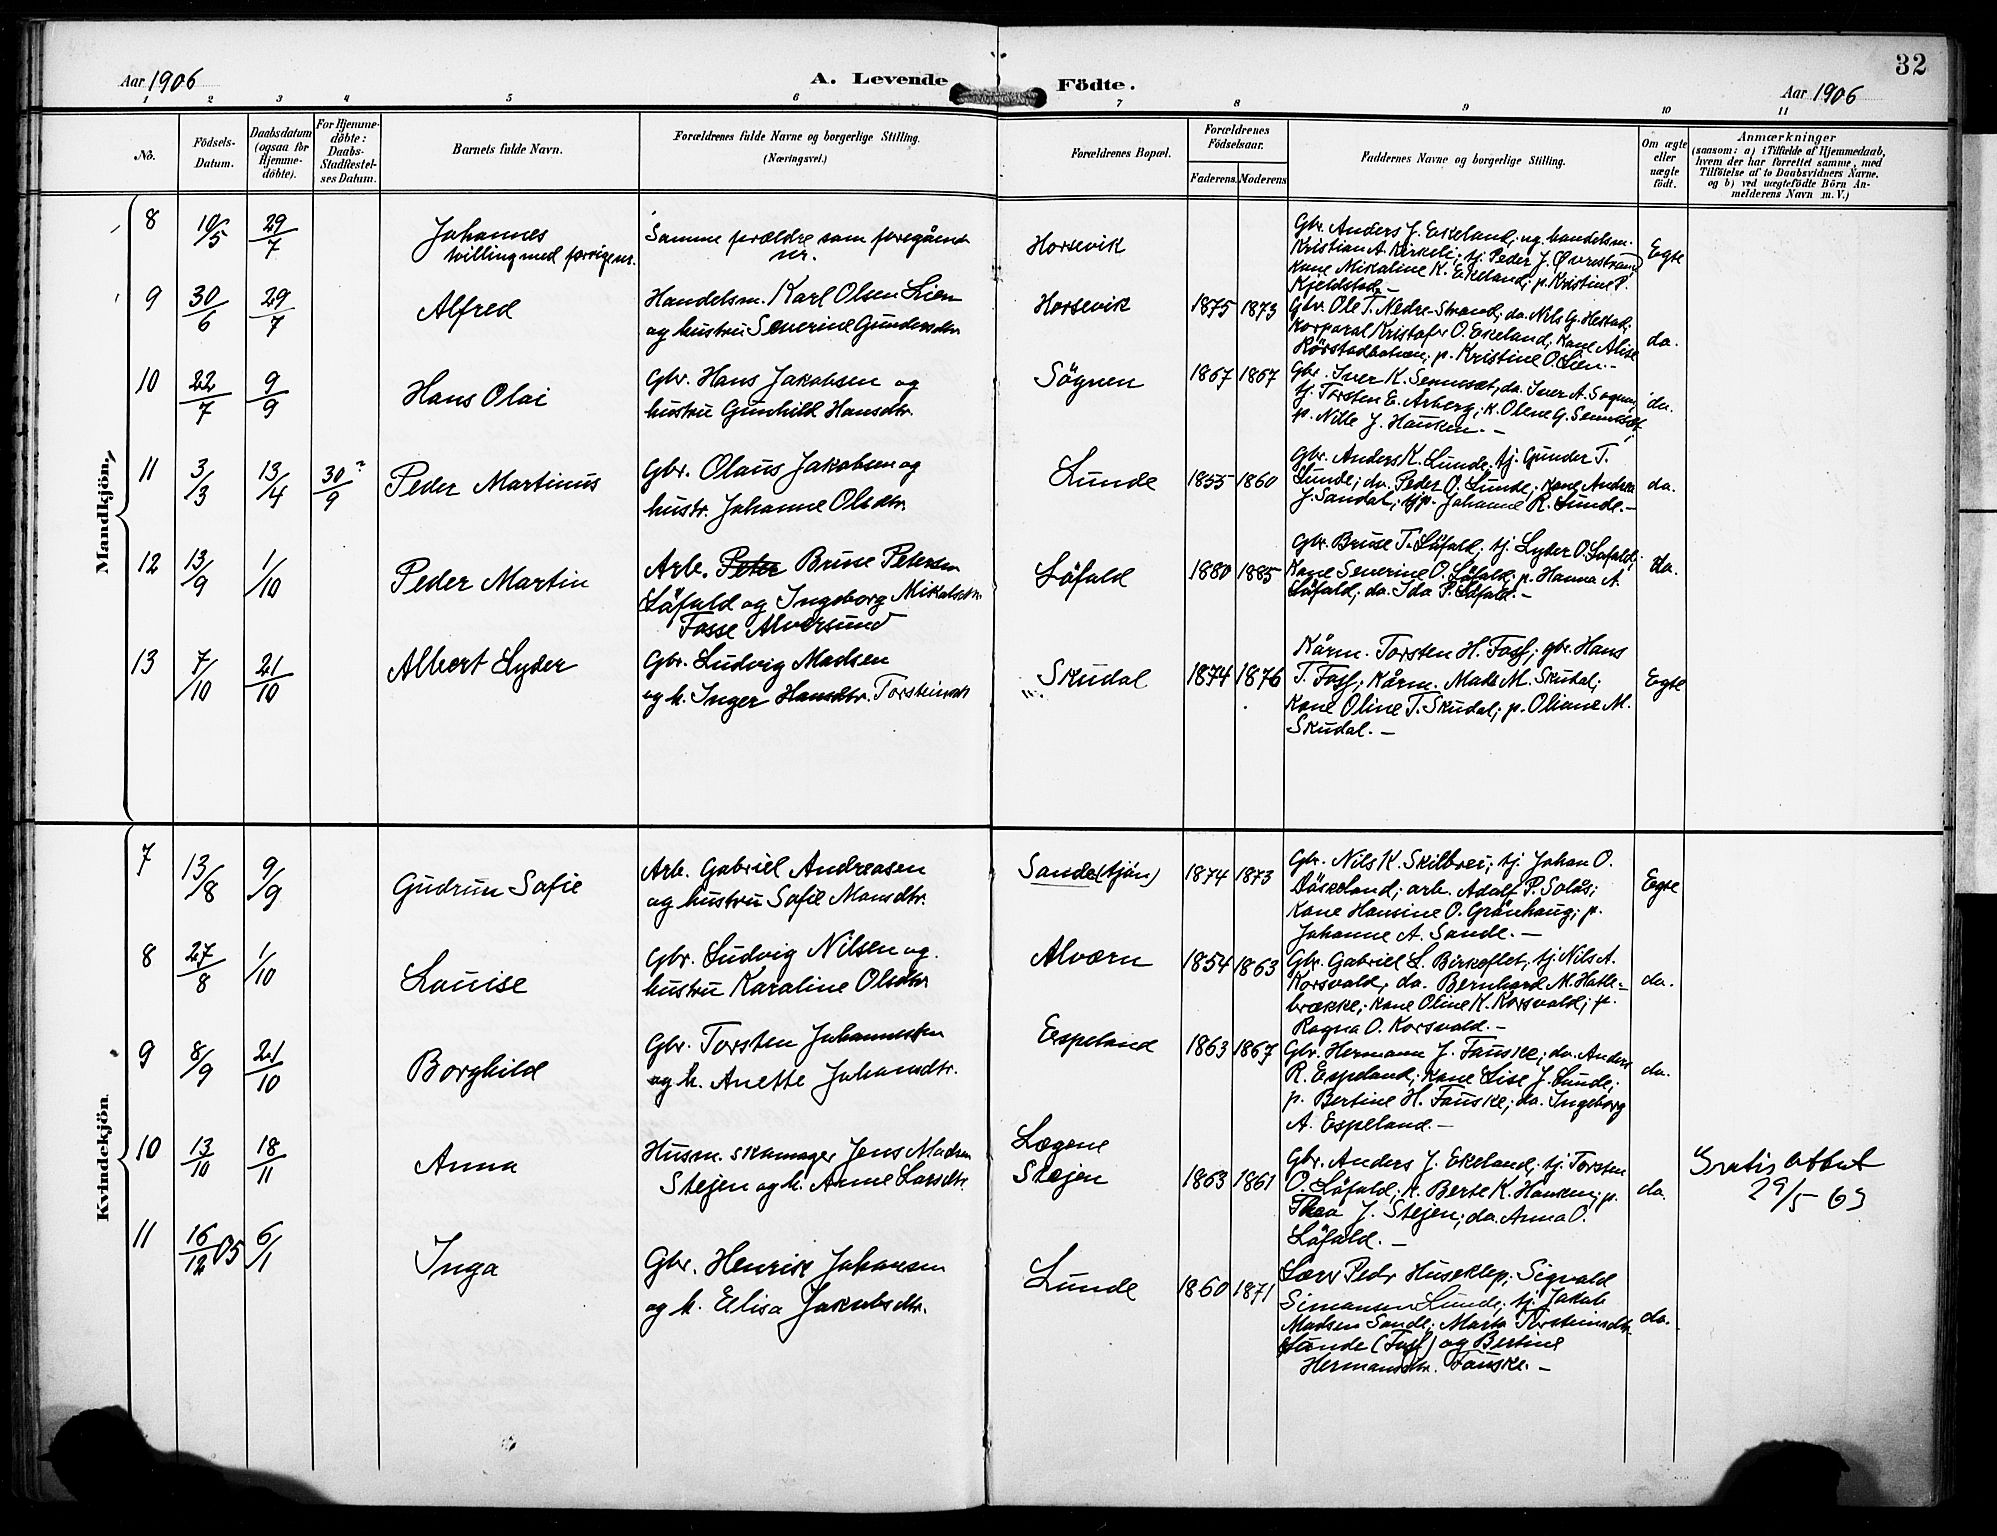 32
Aar 1906
A. Levende Födte.
Aar 1906
1 2 3 4 5 6 7 8 9 10 11
No.
Födsels-
Datum.
Daabsdatum
(ogsaa for
Hjemme-
döbte).
For Hjemme-
döbte:
Daabs-
Stadfestel-
ses Datum.
Barnets fulde Navn.
Forældrenes fulde Navne og borgerlige Stilling.
(Næringsvei.)
Forældrenes Bopæl.
Forældrenes
Födselsaar.
Faderens. Moderens.
Faddernes Navne og borgerlige Stilling.
Om ægte
eller
uægte
födt.
Anmærkninger
(saasom: a) i Tilfælde af Hjemmedaab,
hvem der har forrettet samme, med
Tilföielse af to Daabsvidners Navne.
og b) ved uægtefödte Börn An-
melderens Navn m. V.)
Mandkjön.
8
10/5
29/7
Johannes
tvilling med forrige nr.
Samme forældre som foregående
nr.
Horsevik
Gbr. Anders J. Ekeland, ug. handelsm.
Kristian A. Kirkeli; tj. Peder J. Øvrestrand
Kone Mikaline K. Ekeland; p. Kristine P.
Kjeldstad. –
Egte
9
30/6
29/7
Alfred
Handelsm. Karl Olsen Lien
og hustru Severine Gundersdtr.
Horsevik
1875 1873
Gbr. Ole T. Nedre-Strand; do. Nils G. Hestad;
Korporal Kristofer O. Ekeland, Kone Alise
p. Kristine O. Lien. –
do.
10
22/7
9/9
Hans Olai
Gbr. Hans Jakobsen og
hustru Gunhild Hansdtr.
Sögnen
1867 1867
Gbr. Iver K. Senneset, do. Iver A. Sognen,
tj. Torsten E. Arberg; K. Olene G. Senneset,
p. Nille J. Hauken. –
do.
11
3/3
13/4
30/9
Peder Martinus
Gbr. Olaus Jakobsen og
hustr. Johanne Olsdtr.
Lunde
1855 1860
Gbr. Anders K. Lunde, tj. Gunder T.
Lunde; do. Peder O. Lunde; Kone Andrea
J. Sandal; tjp. Johanne R. Lunde. –
do.
12
13/9
1/10
Peder Martin
Arb. Peter Brune Petersen
Löfald og Ingeborg Mikalsdtr.
Fosse Alversund
Löfald
1880 1885
Gbr. Bruse T. Löfald; tj. Lyder O. Löfald;
Kone Severine O. Löfald, p. Hanna A.
Löfald; do. Ida P. Löfald. –
do.
13
7/10
21/10
Albert Lyder
Gbr. Ludvig Madsen
og h. Inger Hansdtr. Torsteinsdtr.
Skudal
1874 1876
Kårm. Torsten H. Foss; gbr. Hans
T. Foss; Kårm. Mads M. Skudal;
Kone Oline T. Skudal; p. Oliane M.
Skudal. –
Egte
Kvindekjön
7
13/8
9/9
Gudrun Sofie
Arb. Gabriel Andreasen
og hustru Sofie Monsdtr.
Sande (tjön)
1874 1873
Gbr. Nils K. Skilbrei; tj. Johan O.
Döskeland; arb. Adolf P. Solås;
Kone Hansine O. Grönhaug; p.
Johanne A. Sande. –
Egte
8
27/8
1/10
Louise
Gbr. Ludvig Nilsen og
hustru Karoline Olsdtr
Alværn
1854 1863
Gbr. Gabriel L. Birkeflet; tj Nils A.
Korsvold, do. Bernhard M. Hatle-
brække; Kone Oline K. Korsvold; p.
Ragna O. Korsvold. –
do.
9
8/9
21/10
Borghild
Gbr. Torsten Johannessen
og h. Anette Johansdtr.
Espeland
1863 1867
Gbr. Hermann J. Fauske; do. Anders
R. Espeland; Kone Lise J. Lunde;
p. Bertine H. Fauske; do. Ingeborg
A. Espeland. –
do.
10
13/10
18/11
Anna
Husm. skomager Jens Madsen
Steien og h. Anne Larsdtr.
Lægene
Steien
1863 1861
Gbr. Anders J. Ekeland; tj. Torsten
O. Löfald; K. Berte K. Hauken; p.
Thea J. Steien; do. Anna O.
Löfald. –
do.
Gratis attest
29/5 63
11
16/12 05
6/1
Inga
Gbr. Henrik Johansen
og h. Elisa Jakobsdtr.
Lunde
1860 1871
Lærer Pedr Huseklep; Sigvald
Simonsen Lunde; tj. Jakob
Madsen Sande; Marta Torsteinsdtr.
Lunde (Foss) og Bertine
Hermansdtr. Fauske. –
do.